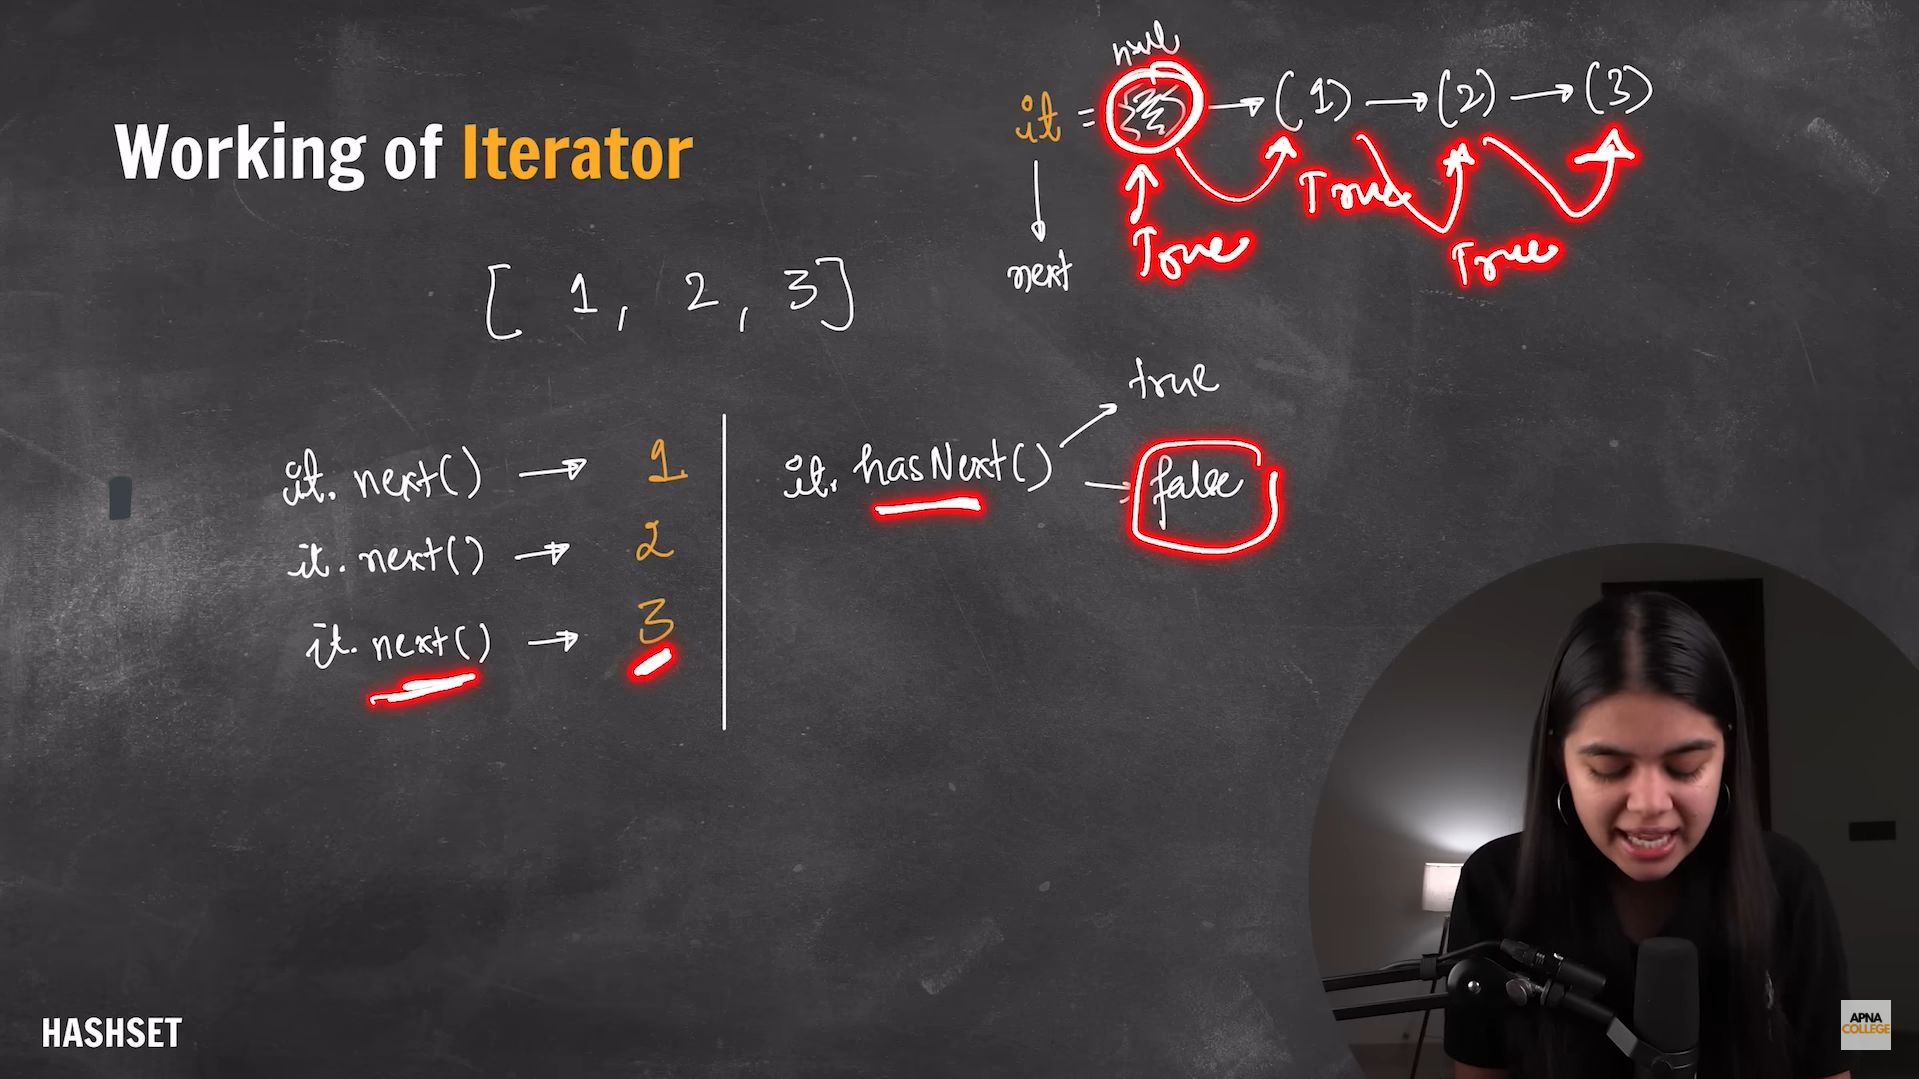 Working of Iterator
null
it = → (1) → (2) → (3)
True
True
True
next
[ 1, 2, 3]
it. next() → 1
it. next() → 2
it. next() → 3
it. hasNext() → true
→ false
HASHSET
APNA
COLLEGE